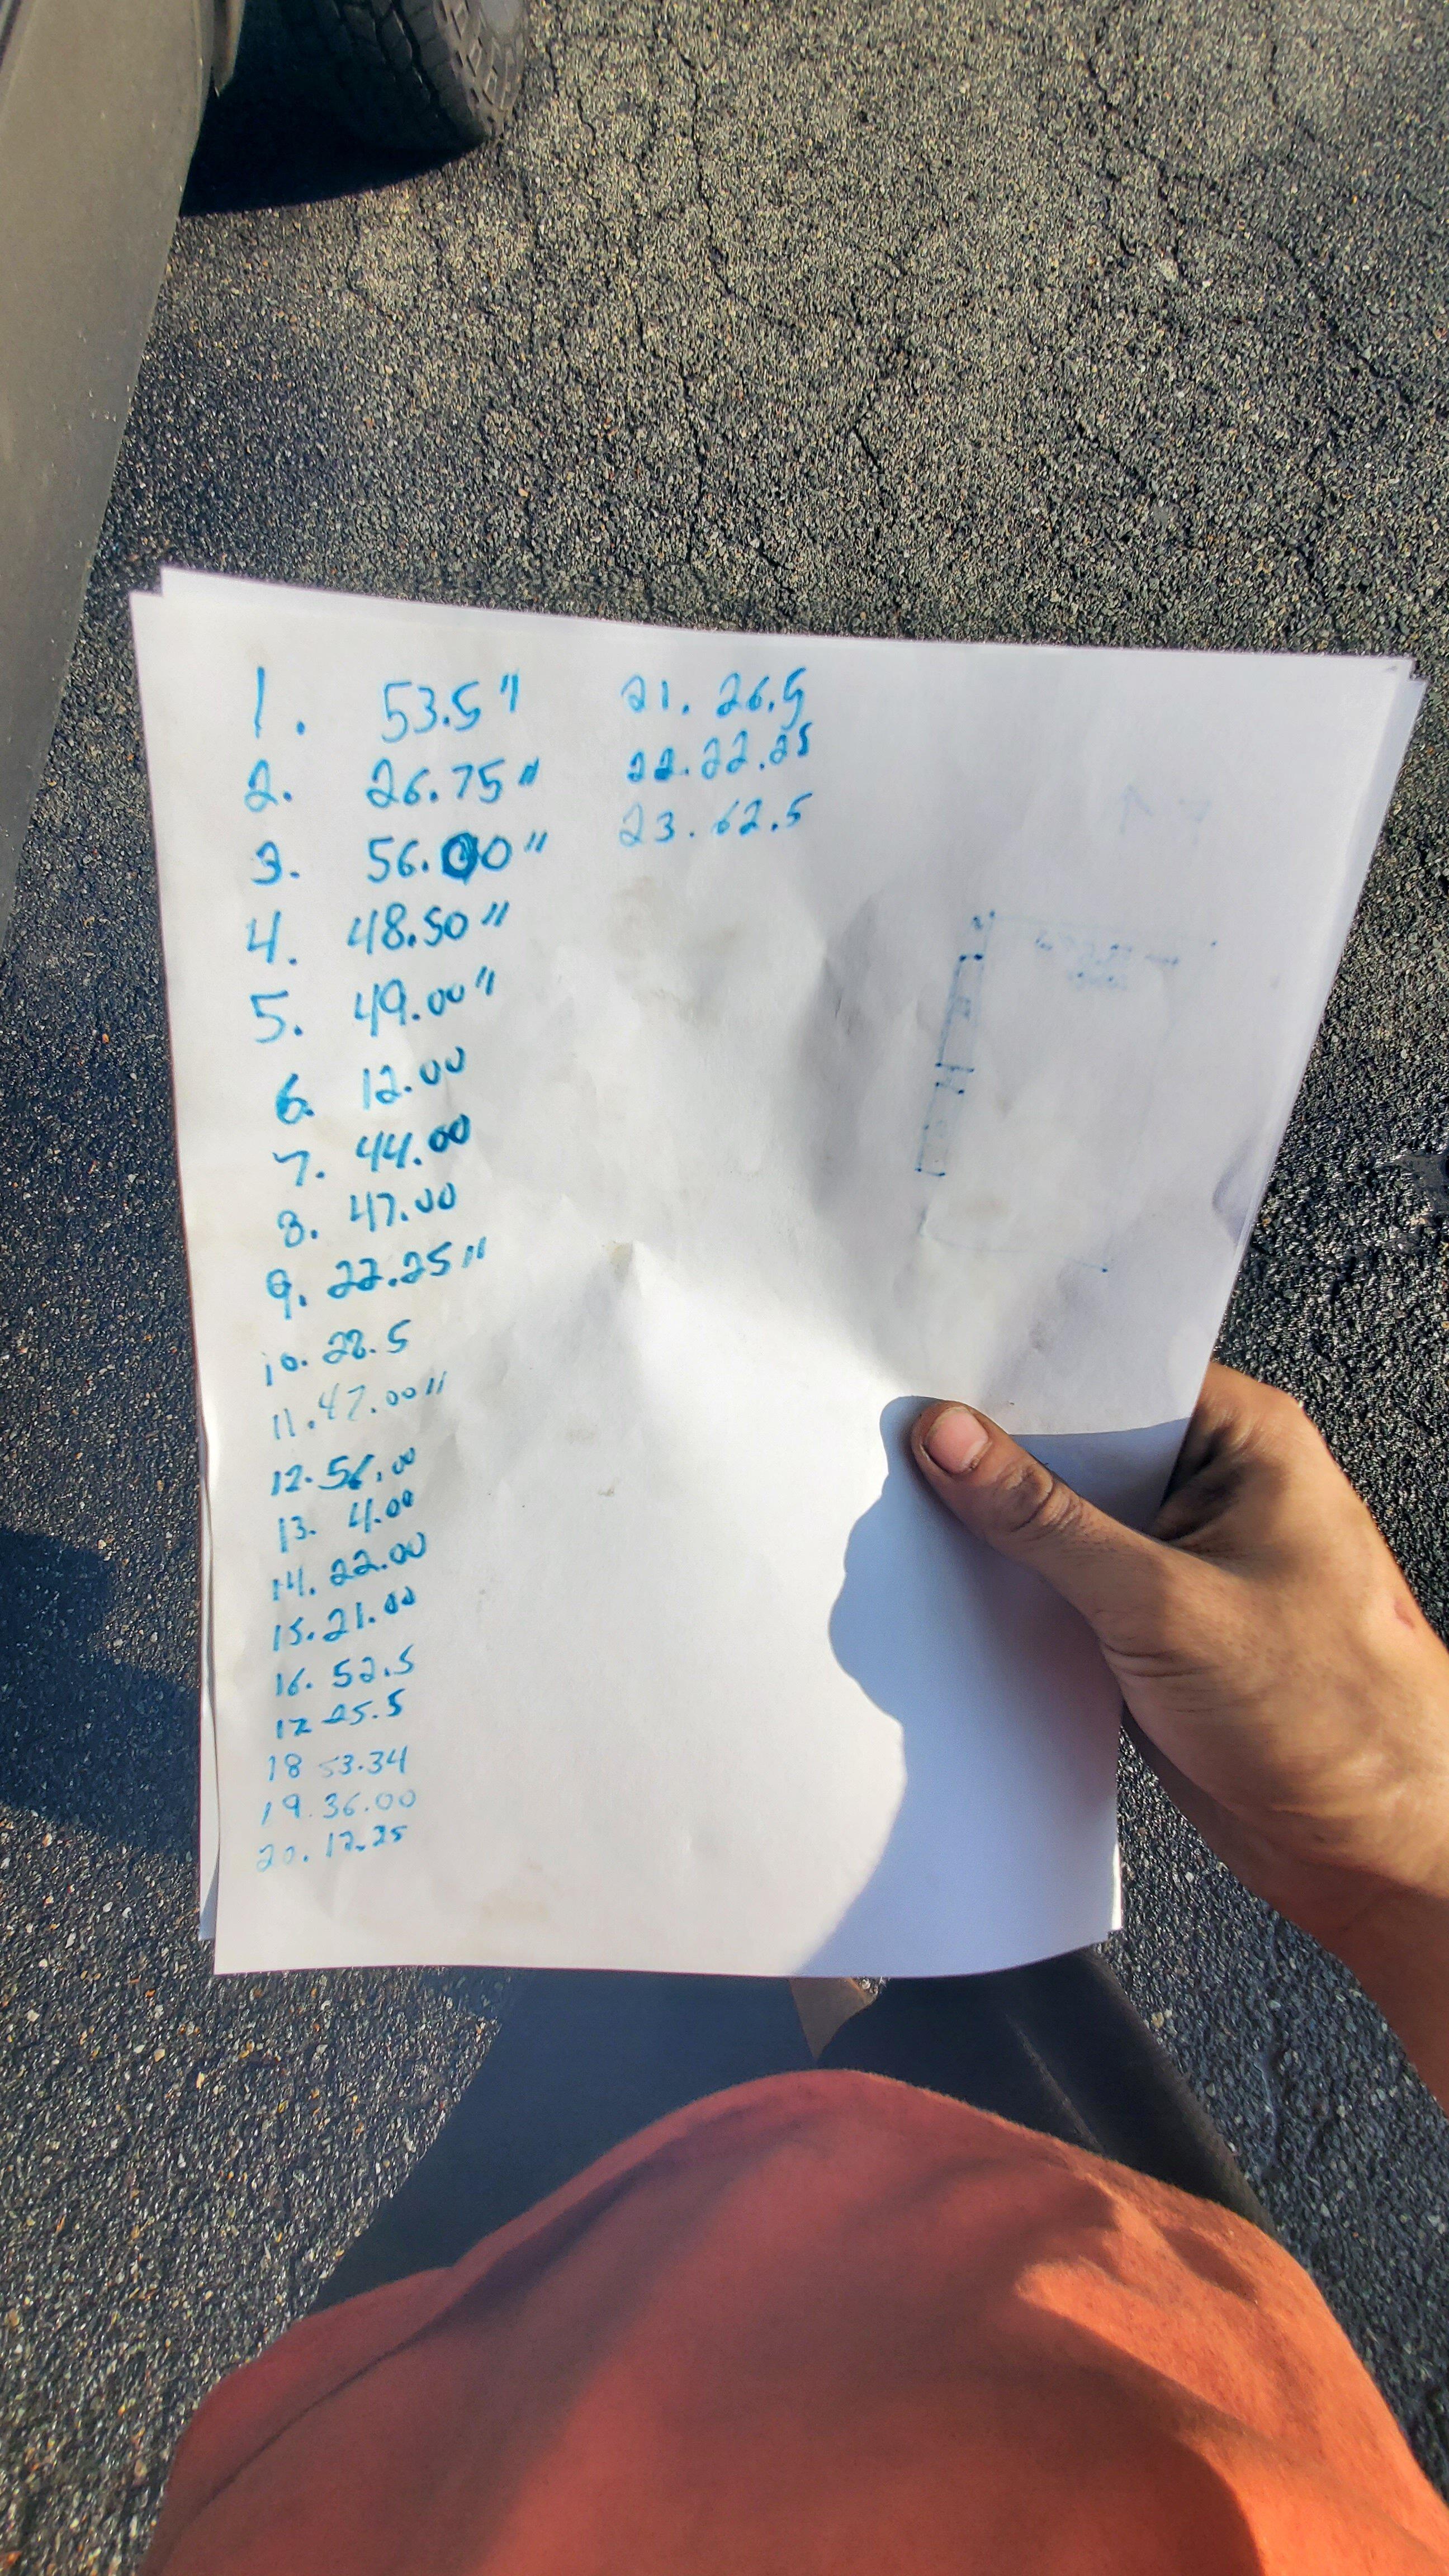 1. 53.5"
2. 26.75"
3. 56.00"
4. 48.50"
5. 49.00"
6. 12.00
7. 44.00
8. 47.00
9. 22.25"
10. 28.5
11. 47.00"
12. 56.00
13. 4.00
14. 22.00
15. 21.00
16. 52.5
17 25.5
18 53.34
19. 36.00
20. 12.25
21. 26.5
22. 22.25
23. 62.5